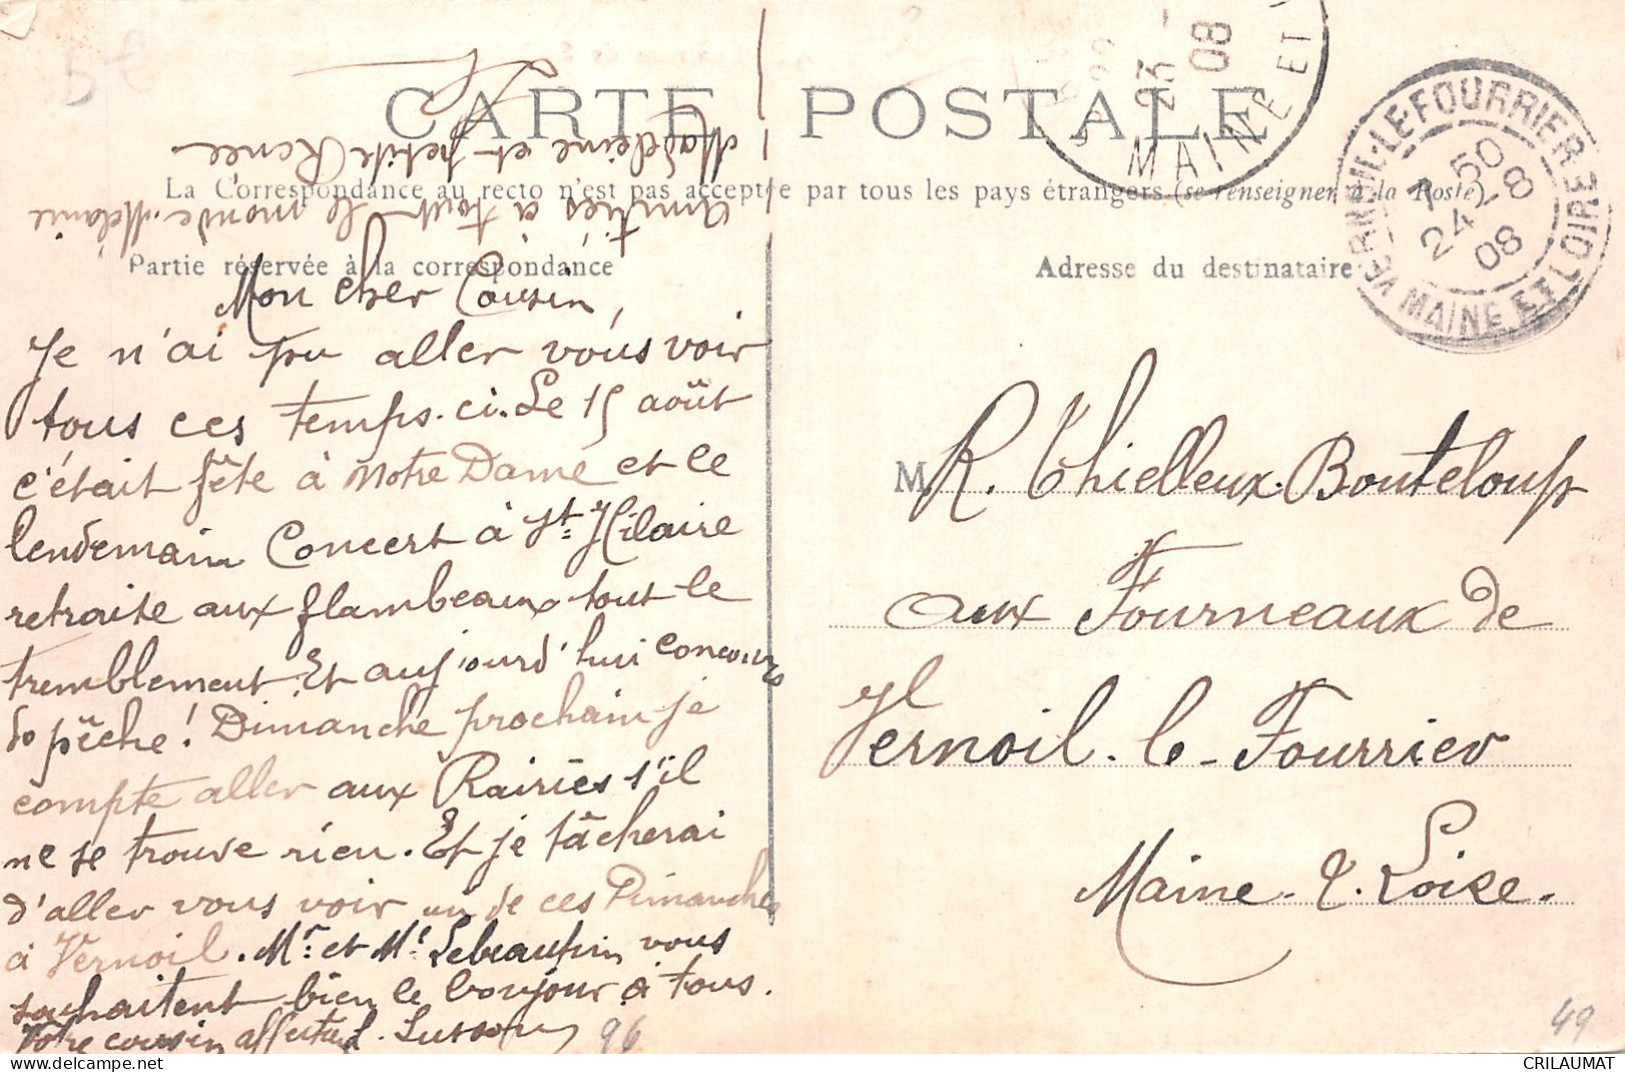 5€
CARTE POSTALE
La Correspondance au recto n'est pas acceptée par tous les pays étrangers (se renseigner à la Poste)
Partie réservée à la correspondance
Adresse du destinataire
23 -
08
MAINE ET
VERNEIL-LE-FOURRIER
7 50
24 - 8
08
MAINE ET LOIRE
Mon Cher Cousin,
Je n'ai pu aller vous voir
tous ces temps-ci. Le 15 août
c'était fête à Notre Dame et le
lendemain Concert à St Hilaire
retraite aux flambeaux tout le
tremblement. Et aujourd'hui concours
de pêche! Dimanche prochain je
compte aller aux Rairies s'il
ne se trouve rien. Et je tâcherai
d'aller vous voir un de ces Dimanches
à Vernoil. Mr. et Me Lebeaupin vous
souhaitent bien le bonjour à tous.
Votre cousin affectué.
Amitiés à tout le monde. Mélanie
Madeleine et petite Renée
M R. Thielleux-Bouteloup
aux Fourneaux de
Vernoil-le-Fourrier
Maine-&-Loire.
96
49
CRILAUMAT